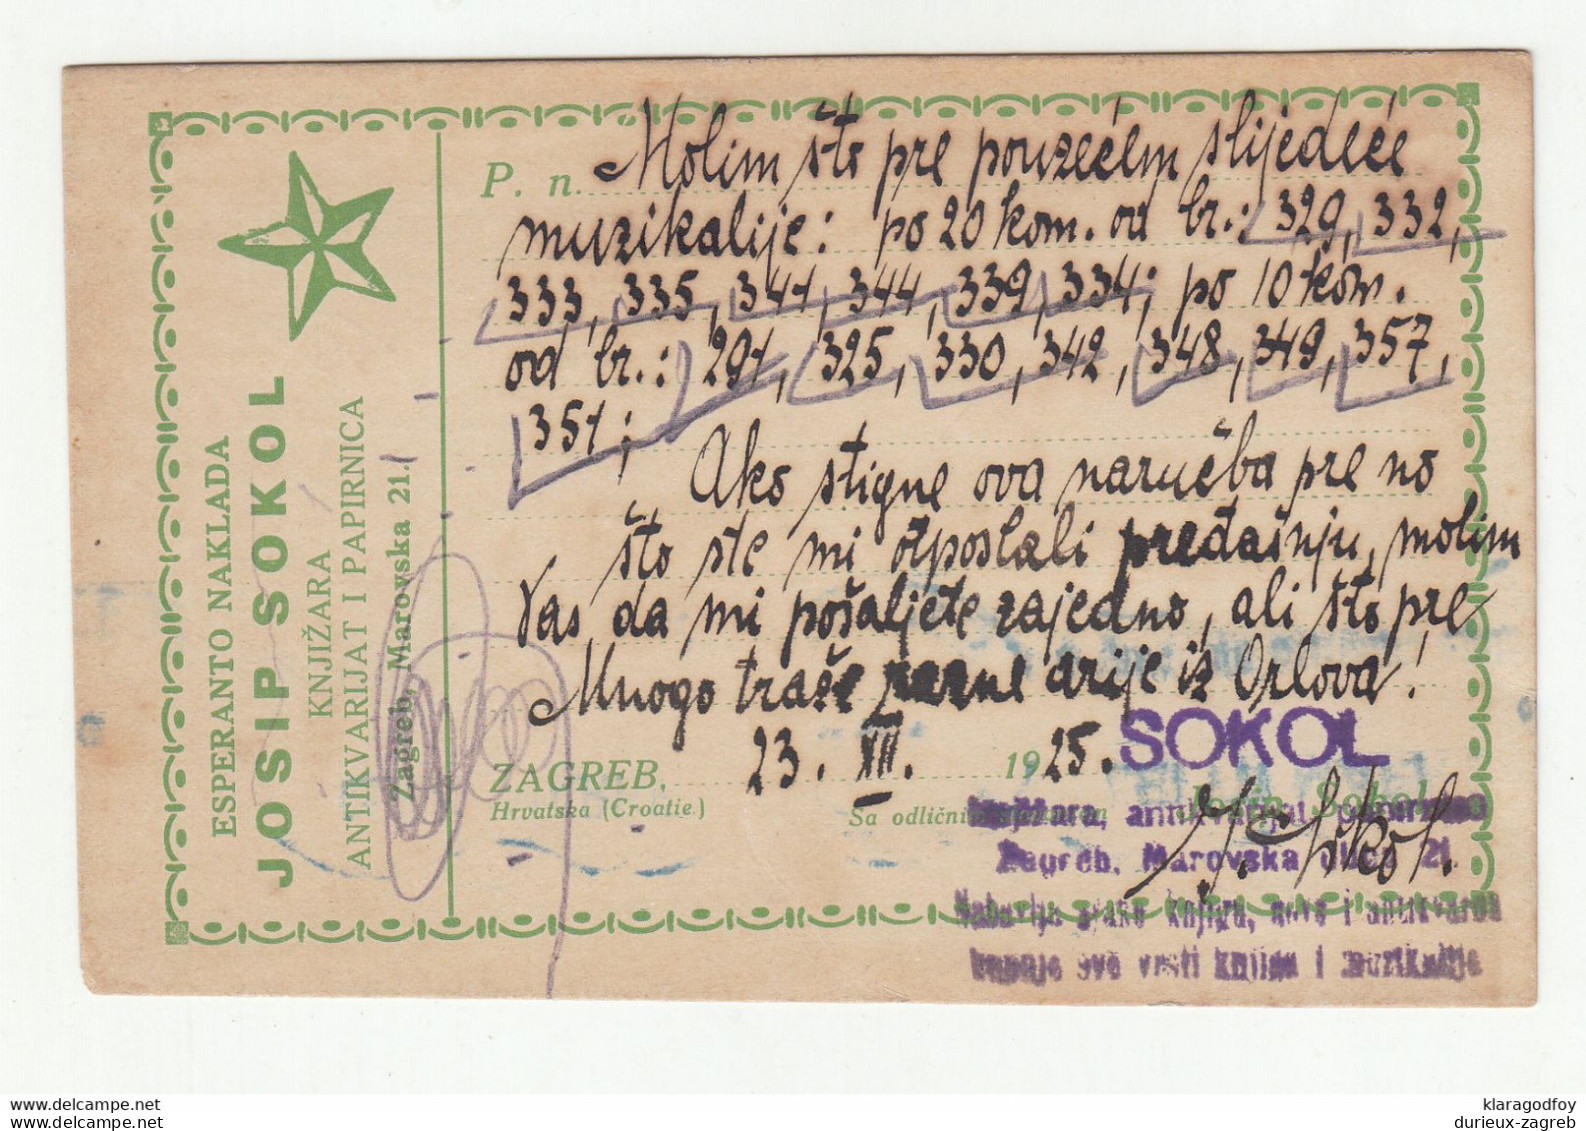 ESPERANTO NAKLADA
JOSIP SOKOL
KNJIŽARA
ANTIKVARIJAT I PAPIRNICA
Zagreb, Marovska 21.
P. n. Molim što pre pouzećem slijedeće
muzikalije: po 20 kom. od br.: 329, 332,
333, 335, 341, 344, 339, 334; po 10 kom.
od br.: 291, 325, 330, 342, 348, 349, 357,
351;
Ako stigne ova naručba pre no
što ste mi otposlali predašnju, molim
Vas, da mi pošaljete zajedno, ali što pre
Mnogo traže arije iz Orlova!
ZAGREB, 23. XII. 1925.
Hrvatska (Croatie.)
Sa odličnim
SOKOL
Josip Sokol
knjižara, antikvarijat papirnica
Zagreb, Marovska ulica 21.
J. Sokol.
Nabavlja svaku knjigu, novu i antikvarnu
kupuje sve vrsti knjiga i muzikalije
klaragodfoy
delcampe.net
durieux-zagreb